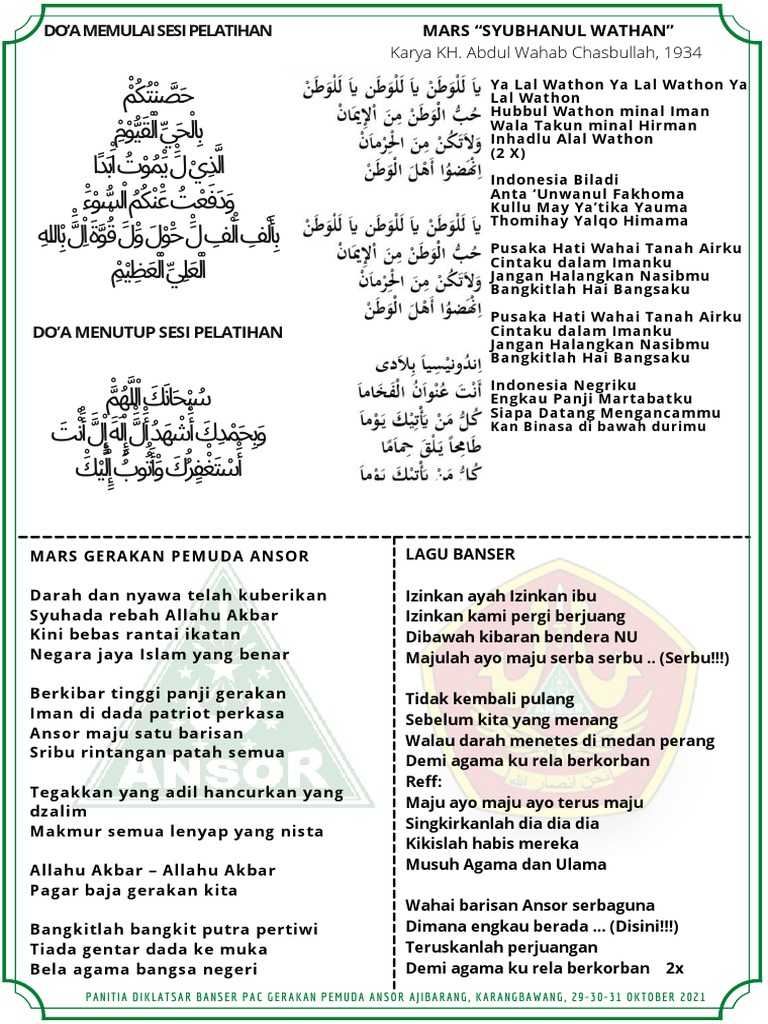 DO’A MEMULAI SESI PELATIHAN
حَصَّنْتُكُمْ
بِالْحَيِّ الْقَيُّوْمِ
الَّذِيْ لَّ يَمُوْتُ أَبَدًا
وَدَفَعْتُ عَنْكُمُ السُّوْءَ
بِأَلْفِ أَلْفِ لَّ حَوْلَ وَلَّ قُوَّةَ إِلَّ بِاللهِ
الْعَلِيِّ الْعَظِيْمِ
DO’A MENUTUP SESI PELATIHAN
سُبْحَانَكَ اللَّهُمَّ
وَبِحَمْدِكَ أَشْهَدُ أَلَّ إِلَهَ إِلَّ أَنْتَ
أَسْتَغْفِرُكَ وَأَتُوبُ إِلَيْكَ
MARS “SYUBHANUL WATHAN”
Karya KH. Abdul Wahab Chasbullah, 1934
ياَ لَلْوَطَنْ ياَ لَلْوَطَن ياَ لَلْوَطَنْ
حُبُّ الْوَطَنْ مِنَ اْلإِيمَانْ
وَلاَتَكُنْ مِنَ الْحِرْماَنْ
اِنْهَضوُا أَهْلَ الْوَطَنْ
ياَ لَلْوَطَنْ ياَ لَلْوَطَن ياَ لَلْوَطَنْ
حُبُّ الْوَطَنْ مِنَ اْلإِيمَانْ
وَلاَتَكُنْ مِنَ الْحِرْماَنْ
اِنْهَضوُا أَهْلَ الْوَطَنْ
اِندُونيْسِياَ بِلاَدى
أَنْتَ عُنْوَانُ الْفَخَاماَ
كُلُّ مَنْ يَأْتِيْكَ يَوْماَ
طَامِحاً يَلْقَ حِمَامًا
كُلُّ مَنْ يَأْتِيْكَ يَوْماَ
Ya Lal Wathon Ya Lal Wathon Ya
Lal Wathon
Hubbul Wathon minal Iman
Wala Takun minal Hirman
Inhadlu Alal Wathon
(2 X)
Indonesia Biladi
Anta ‘Unwanul Fakhoma
Kullu May Ya’tika Yauma
Thomihay Yalqo Himama
Pusaka Hati Wahai Tanah Airku
Cintaku dalam Imanku
Jangan Halangkan Nasibmu
Bangkitlah Hai Bangsaku
Pusaka Hati Wahai Tanah Airku
Cintaku dalam Imanku
Jangan Halangkan Nasibmu
Bangkitlah Hai Bangsaku
Indonesia Negriku
Engkau Panji Martabatku
Siapa Datang Mengancammu
Kan Binasa di bawah durimu
MARS GERAKAN PEMUDA ANSOR
Darah dan nyawa telah kuberikan
Syuhada rebah Allahu Akbar
Kini bebas rantai ikatan
Negara jaya Islam yang benar
Berkibar tinggi panji gerakan
Iman di dada patriot perkasa
Ansor maju satu barisan
Sribu rintangan patah semua
ANSOR
Tegakkan yang adil hancurkan yang
dzalim
Makmur semua lenyap yang nista
Allahu Akbar – Allahu Akbar
Pagar baja gerakan kita
Bangkitlah bangkit putra pertiwi
Tiada gentar dada ke muka
Bela agama bangsa negeri
LAGU BANSER
Izinkan ayah Izinkan ibu
Izinkan kami pergi berjuang
Dibawah kibaran bendera NU
Majulah ayo maju serba serbu .. (Serbu!!!)
Tidak kembali pulang
Sebelum kita yang menang
Walau darah menetes di medan perang
Demi agama ku rela berkorban
نحن انصار الله
Reff:
Maju ayo maju ayo terus maju
Singkirkanlah dia dia dia
Kikislah habis mereka
Musuh Agama dan Ulama
Wahai barisan Ansor serbaguna
Dimana engkau berada … (Disini!!!)
Teruskanlah perjuangan
Demi agama ku rela berkorban 2x
PANITIA DIKLATSAR BANSER PAC GERAKAN PEMUDA ANSOR AJIBARANG, KARANGBAWANG, 29-30-31 OKTOBER 2021